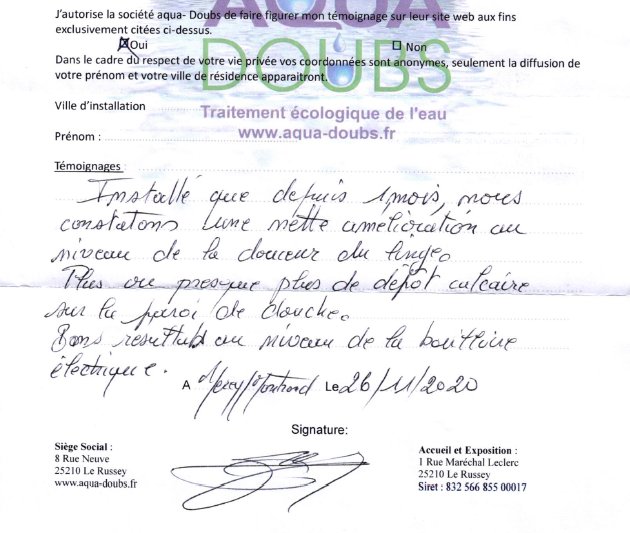 AQUA
DOUBS
J'autorise la société aqua- Doubs de faire figurer mon témoignage sur leur site web aux fins
exclusivement citées ci-dessus.
Oui Non
Dans le cadre du respect de votre vie privée vos coordonnées sont anonymes, seulement la diffusion de
votre prénom et votre ville de résidence apparaitront.
Ville d'installation
Traitement écologique de l'eau
www.aqua-doubs.fr
Prénom :
Témoignages
Installé que depuis 1 mois, nous
constatons une nette amélioration au
niveau de la douceur du linge.
Plus ou presque plus de dépôt calcaire
sur la paroi de douche.
Bons resultats au niveau de la bouilloire
électrique.
A Le 26/11/2020
Signature:
Siège Social :
8 Rue Neuve
25210 Le Russey
www.aqua-doubs.fr
Accueil et Exposition :
1 Rue Maréchal Leclerc
25210 Le Russey
Siret : 832 566 855 00017